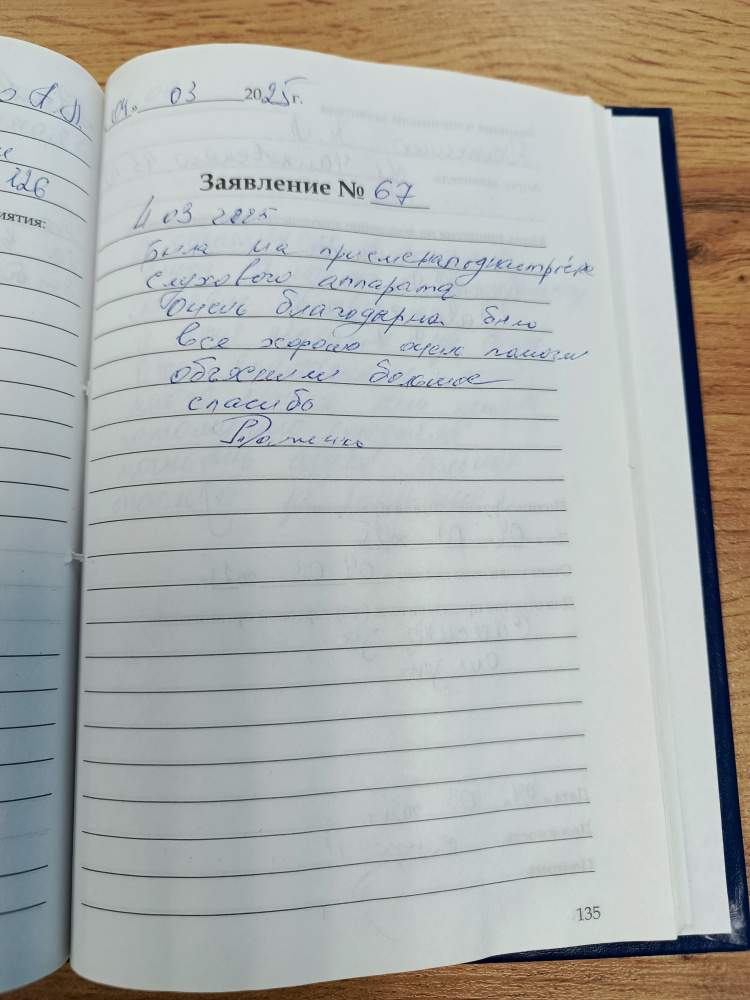 126
иятия:
04. 03 2025 г.
Заявление № 67
4 03 2025
Была на приеме на поднастройке
слухового аппарата
Очень благодарна было
все хорошо очень помогли
объяснили большое
спасибо
135